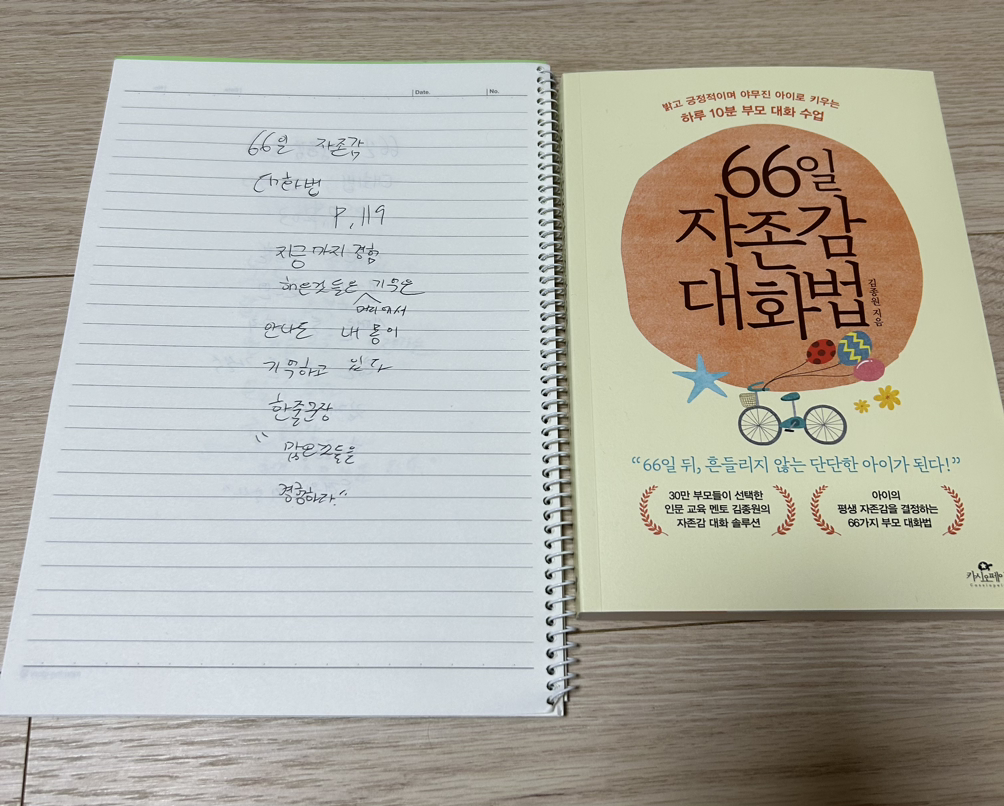 Date.
No.
66일 자존감
대화법
P.119
지금까지 경험
해온것들은 기억은
머리에서
안나도 내 몸이
기억하고 있다
한줄문장
"많은것들을
경험하라"
밝고 긍정적이며 야무진 아이로 키우는
하루 10분 부모 대화 수업
66일
자존감
대화법
김종원 지음
"66일 뒤, 흔들리지 않는 단단한 아이가 된다!"
30만 부모들이 선택한
인문 교육 멘토 김종원의
자존감 대화 솔루션
아이의
평생 자존감을 결정하는
66가지 부모 대화법
카시오페아